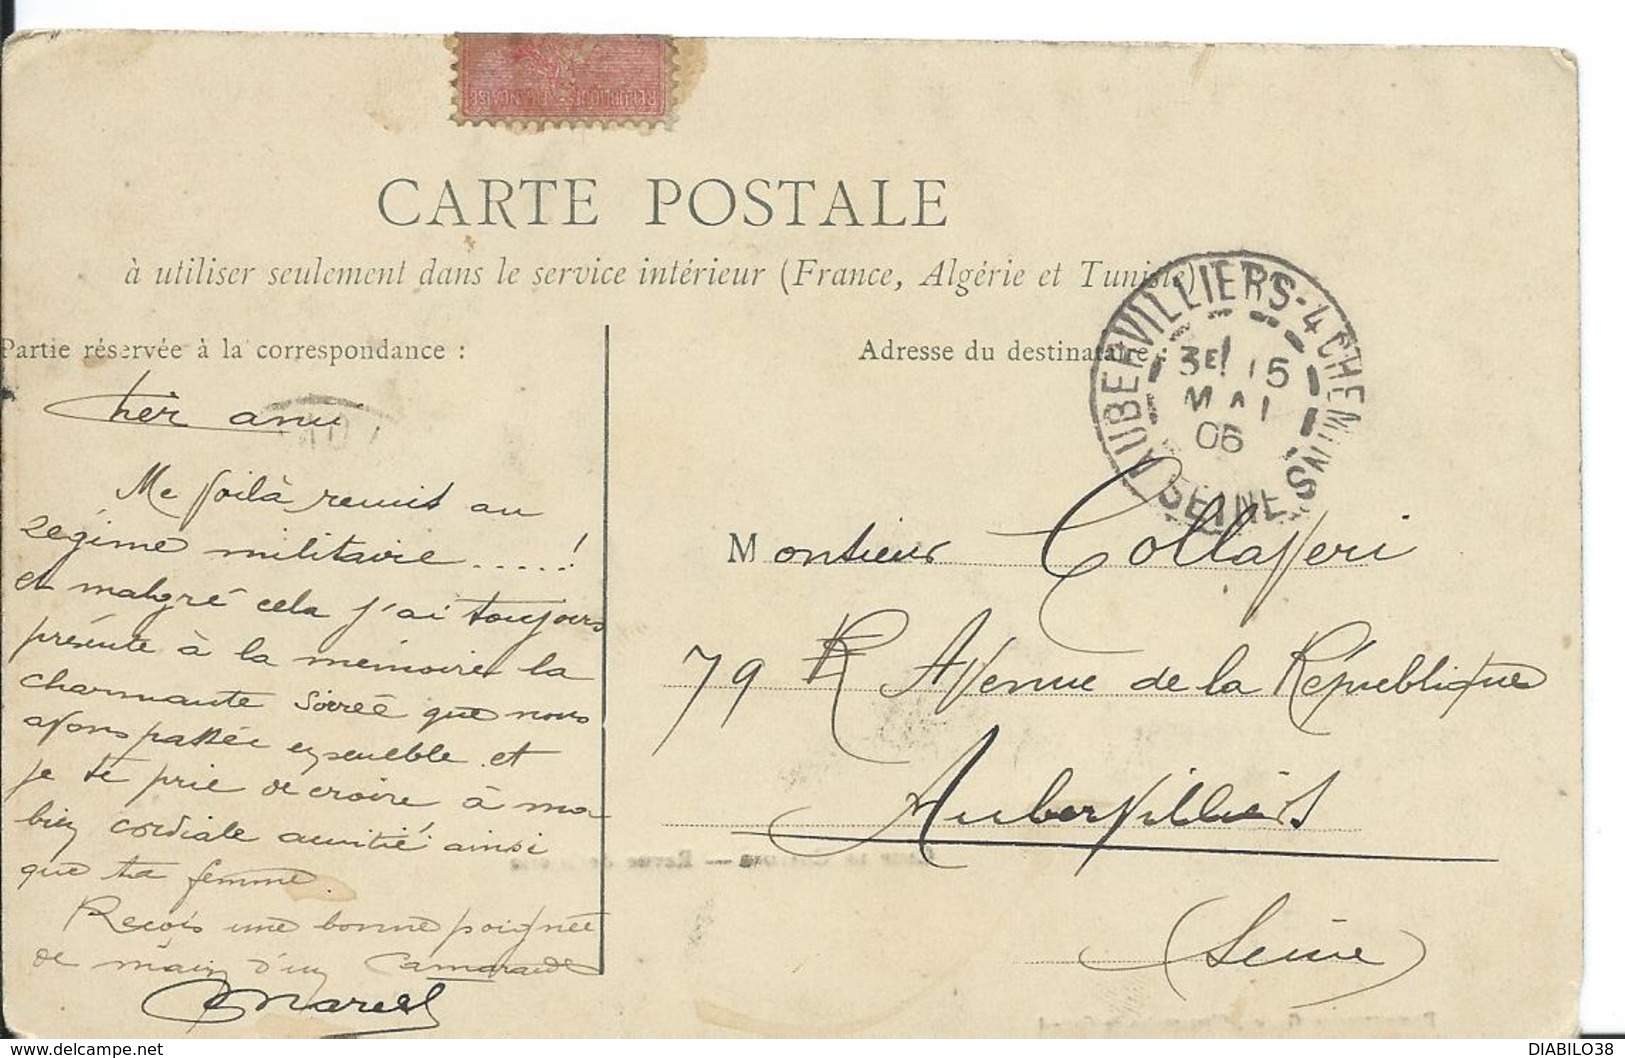 REPUBLIQUE FRANÇAISE
CARTE POSTALE
à utiliser seulement dans le service intérieur (France, Algérie et Tunisie)
Partie réservée à la correspondance :
Cher ami
Me voilà remis au
régime militaire .....!
et malgré cela j'ai toujours
présente à la mémoire la
charmante soirée que nous
avons passée ensemble et
je te prie de croire à ma
bien cordiale amitié ainsi
que ta femme.
Reçois une bonne poignée
de main d'un Camarade
Marcel
Adresse du destinataire :
AUBERVILLIERS-4 CHEMINS
3E 15
MAI
06
SEINE
Monsieur Collaveri
79 Avenue de la République
Aubervilliers
(Seine)
DIABILO38